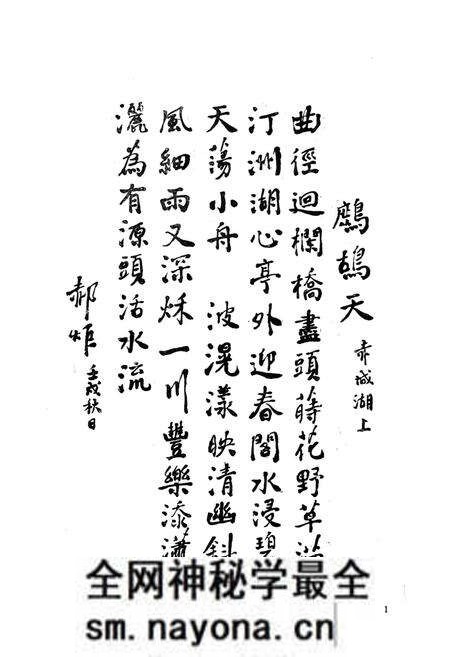 鷓鴣天 赤城湖上
曲徑迴欄橋盡頭蒔花野草滿
汀洲湖心亭外迎春閣水浸碧
天蕩小舟 波滉漾映清幽斜
風細雨又深秌一川豐樂添瀟
灑為有源頭活水流
郝炬 壬戌秋日
全网神秘学最全
sm.nayona.cn
1